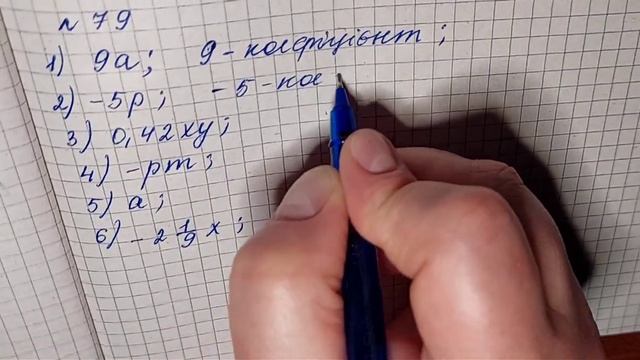 № 79
1) 9a; 9 - коефіцієнт;
2) -5p; -5 - кое
3) 0,42xy;
4) -pm;
5) a;
6) -2 1/9 x;